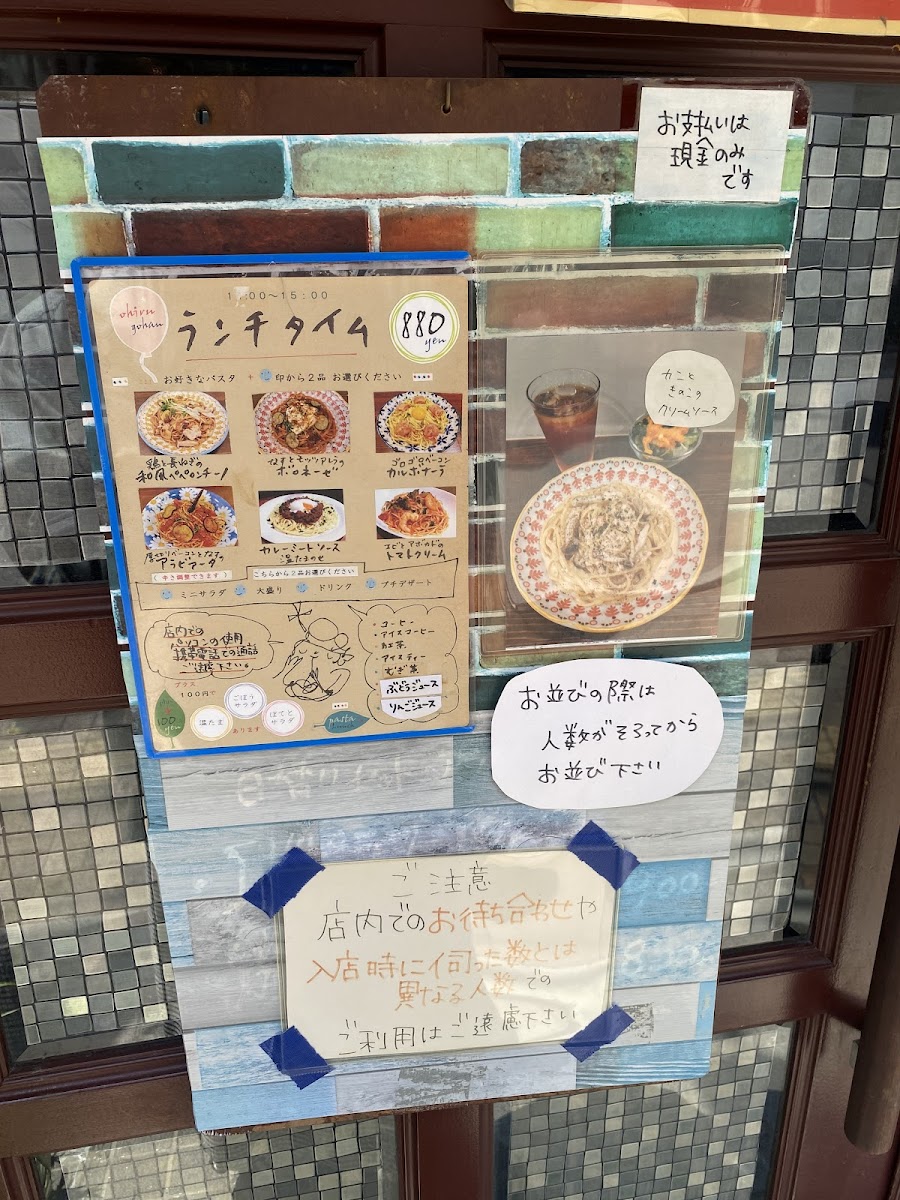 お支払いは
現金のみ
です
11:00～15:00
ohiru
gohan
ランチタイム
880
yen
お好きなパスタ + 印から2品 お選びください
鶏と長ねぎの
和風ペペロンチーノ
なすとモッツァレラの
ボロネーゼ
ゴロゴロベーコン
カルボナーラ
厚切りベーコンとナスの
アラビアータ
(辛さ調整できます)
カレーミートソース
温たまのせ
エビとアボカドの
トマトクリーム
こちらから2品お選びください
ミニサラダ 大盛り ドリンク プチデザート
店内での
パソコンの使用
携帯電話での通話
ご遠慮下さい。
・コーヒー
・アイスコーヒー
・紅茶
・アイスティー
・むぎ茶
ぶどうジュース
りんごジュース
プラス
100円で
100
yen
温たま
ごぼう
サラダ
ぽてと
サラダ
あります
pasta
カニと
きのこの
クリームソース
お並びの際は
人数がそろってから
お並び下さい
ご注意
店内でのお待ち合わせや
入店時に伺った数とは
異なる人数での
ご利用はご遠慮下さい